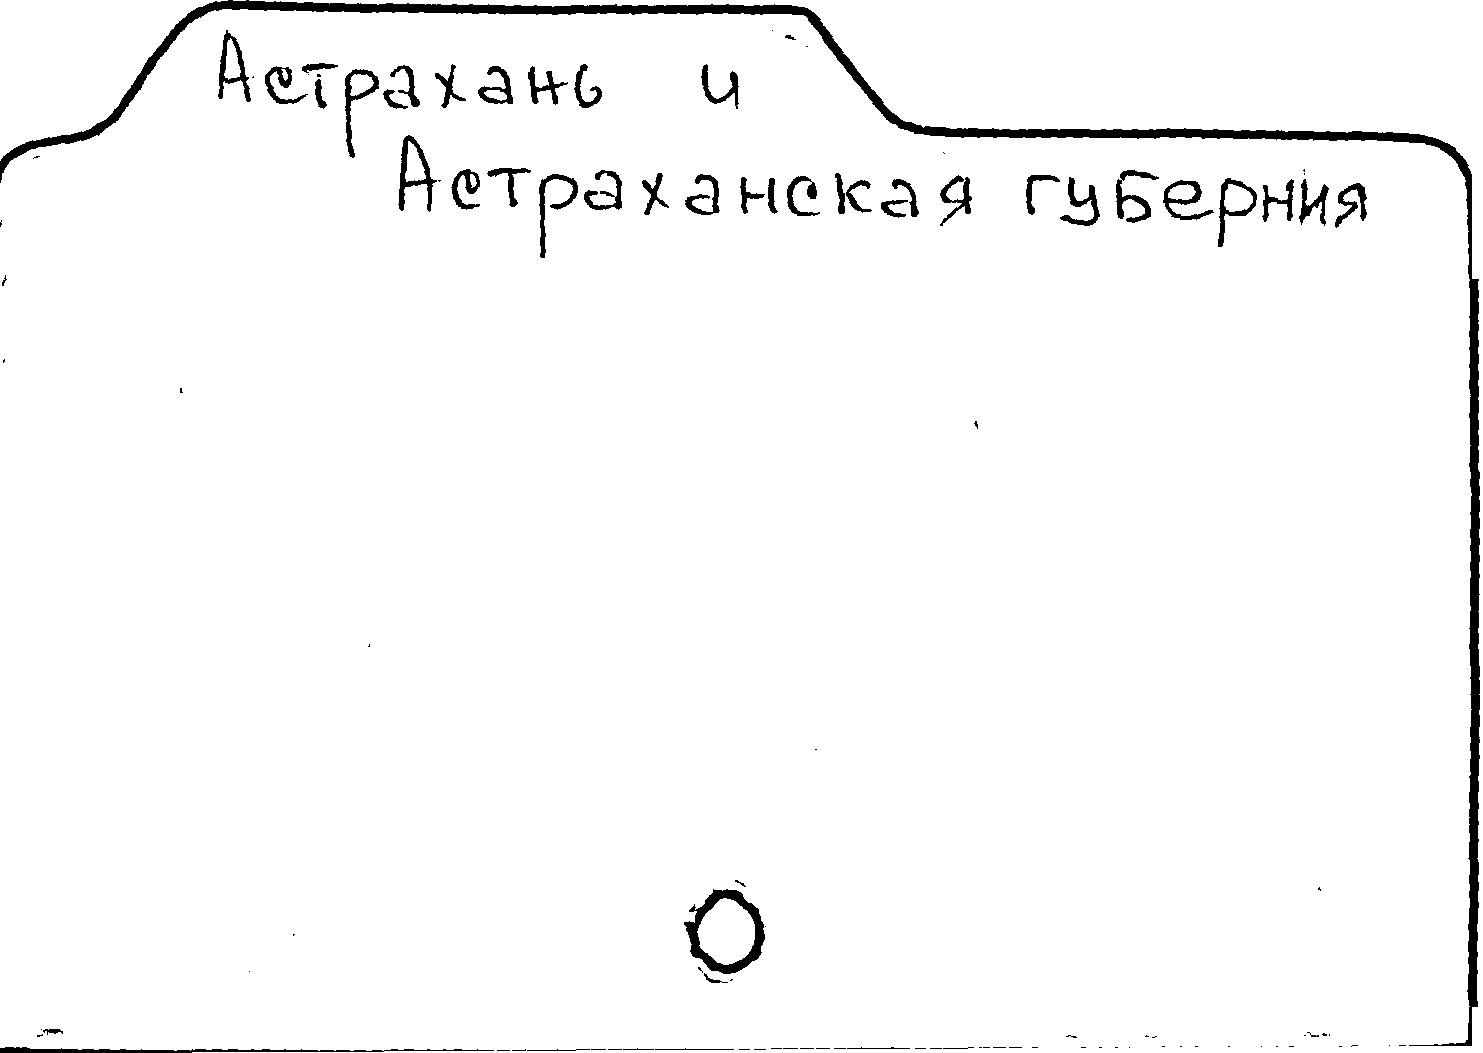 Астрахань и
Астраханская губерния